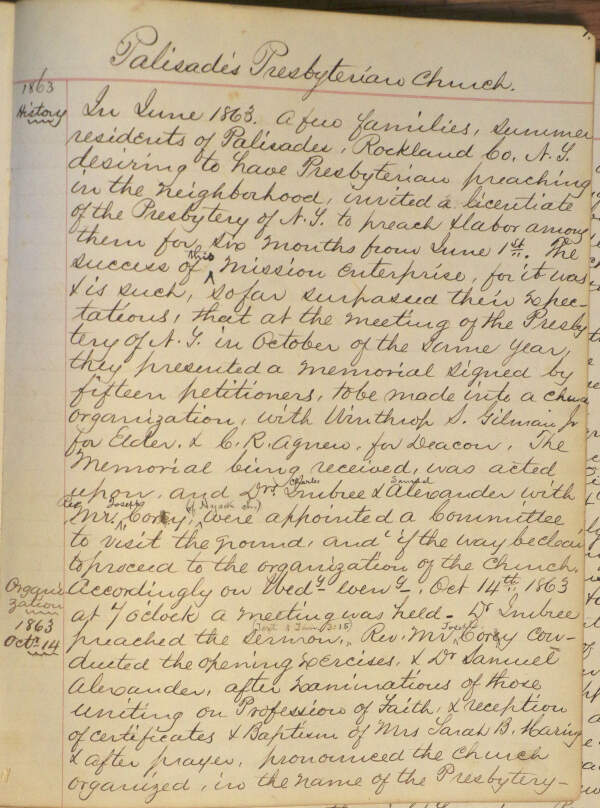 1.
Palisades Presbyterian Church.
1863
History
In June 1863. a few families, summer
residents of Palisades, Rockland Co. N.Y.
desiring to have Presbyterian preaching
in the neighborhood, invited a licentiate
of the Presbytery of N.Y. to preach & labor among
them for six months from June 1st. The
success of this Mission enterprise, for it was
& is such, so far surpased their expec-
tations, that at the meeting of the Presby
tery of N.Y. in October of the same year,
they presented a memorial signed by
fifteen petitioners, to be made into a
organization, with Winthrop S. Gilman Jr
for Elder. & C. R. Agnew, for Deacon. The
Memorial being received, was acted
upon, and Drs Charles Imbree & Samuel Alexander with
Rev Mr. Joseph Corey, were appointed a Committee
to visit the ground, and if the way be clear
to proceed to the organization of the Church.
Organi
zation
1863
Oct. 14
Accordingly on Wedy Eveng. Oct 14th, 1863
at 7 o'clock a meeting was held - Dr Imbree
preached the Sermon, Rev. Mr Joseph Corey con-
ducted the opening exercises, & Dr Samuel
Alexander, after examinations of those
uniting on Profession of Faith, & reception
of certificates & Baptism of Mrs Sarah B. Haring
& after prayer, pronounced the Church
organized, in the name of the Presbytery-